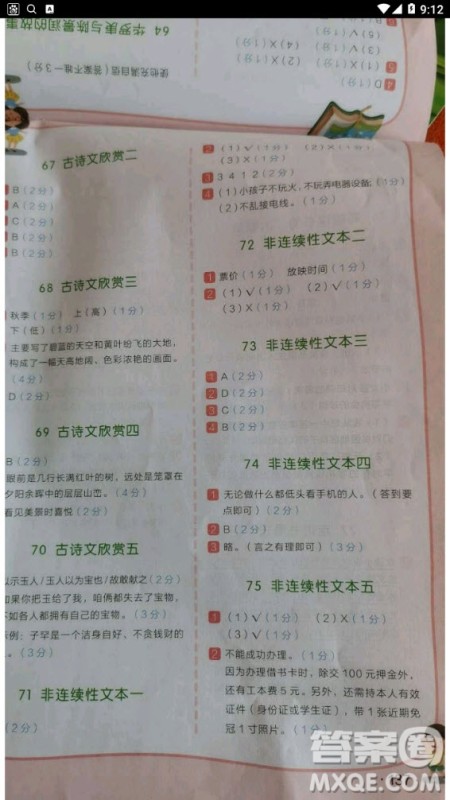 9:12
64 华罗庚与陈景润的故事
便他充满自信(答案不唯一3分)
(3)√(1分) (4)X(1分)
(1)√(1分) (2)X(1分)
5
4 D(2分)
67 古诗文欣赏二
B(2分)
A(2分)
B(2分)
B(2分)
68 古诗文欣赏三
秋季(1分) 上(高)(1分)
下(低)(1分)
主要写了碧蓝的天空和黄叶纷飞的大地,
构成了一幅天高地阔、色彩浓艳的画面。
(4分)
D(2分)
69 古诗文欣赏四
B(2分)
眼前是几行长满红叶的树,远处是笼罩在
夕阳余晖中的层层山峦。(4分)
看见美景时喜悦(2分)
70 古诗文欣赏五
以示玉人/玉人以为宝也/故敢献之(2分)
如果你把玉给了我,咱俩都失去了宝物,
不如各人都拥有自己的宝物。(3分)
示例:子罕是一个洁身自好、不贪钱财的
。(3分)
71 非连续性文本一
(2分)
2 (1)√(1分) (2)X(1分)
(3)X(1分)
3 3 4 1 2(2分)
4 (1)小孩子不玩火,不玩弄电器设备;(1分)
(2)不乱接电线。(1分)
72 非连续性文本二
1 票价(1分) 放映时间(1分)
2 (1)√(1分) (2)√(1分)
(3)X(1分)
73 非连续性文本三
1 A(2分)
2 D(2分)
3 C(2分)
4 B(2分)
74 非连续性文本四
1 无论做什么都低头看手机的人。(答到要
点即可)(2分)
2 B(2分)
3 略。(言之有理即可)(3分)
75 非连续性文本五
1 (1)√(1分) (2)X(1分)
(3)√(1分)
2 不能成功办理。(1分)
因为办理借书卡时,除交100元押金外,
还有工本费5元。另外,还需持本人有效
证件(身份证或学生证),带1张近期免
冠1寸照片。(1分)
137
答案圈
MXQE.COM